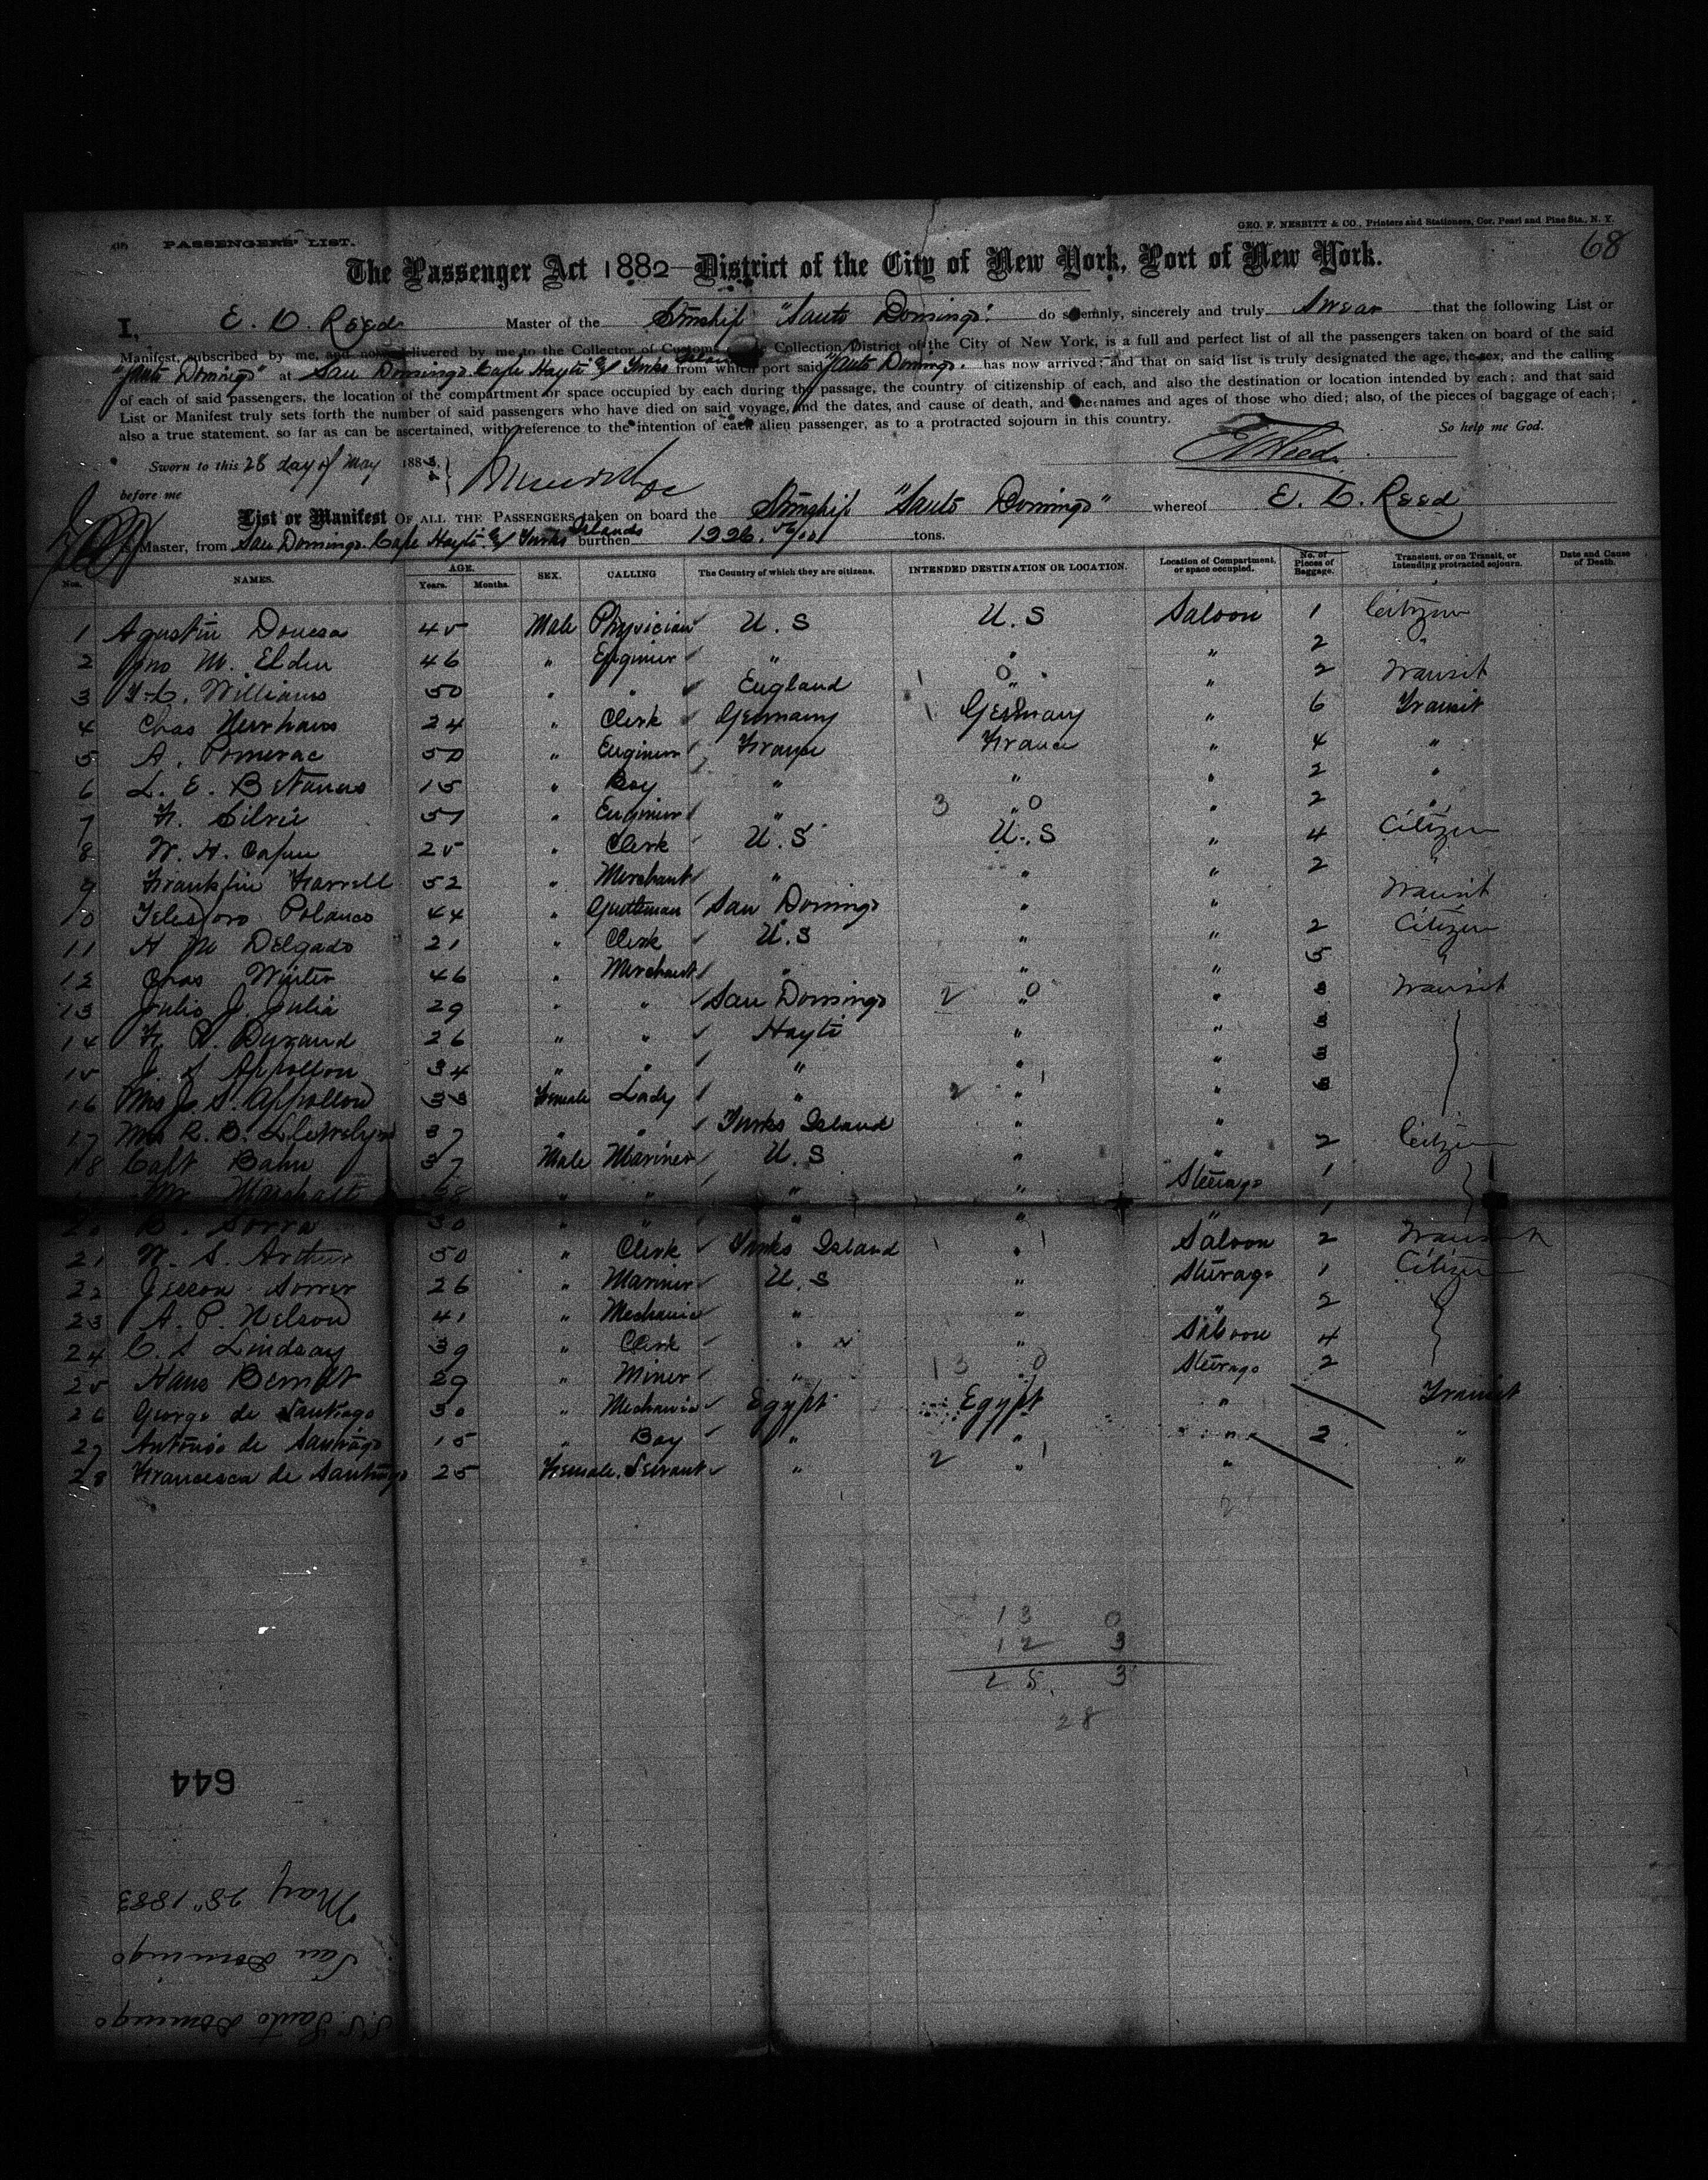 GEO. F. NESBITT & CO., Printers and Stationers, Cor. Pearl and Pine Sts., N. Y.
PASSENGERS' LIST.
68
The Passenger Act 1882 District of the City of New York, Port of New York.
I, E. D. Reed Master of the Stmship "Santo Domingo" do solemnly, sincerely and truly Swear that the following List or
Manifest, subscribed by me, and now delivered by me to the Collector of Customs Collection District of the City of New York, is a full and perfect list of all the passengers taken on board of the said
"Santo Domingo" at San Domingo. Cape Hayti & Turks Island from which port said "Santo Domingo. has now arrived; and that on said list is truly designated the age, the sex, and the calling
of each of said passengers, the location of the compartment or space occupied by each during the passage, the country of citizenship of each, and also the destination or location intended by each; and that said
List or Manifest truly sets forth the number of said passengers who have died on said voyage, and the dates, and cause of death, and the names and ages of those who died; also, of the pieces of baggage of each;
also a true statement, so far as can be ascertained, with reference to the intention of each alien passenger, as to a protracted sojourn in this country. So help me God.
Sworn to this 28 day of May 1883. E D Reed
before me
List or Manifest OF ALL THE PASSENGERS taken on board the Stmship "Santo Domingo" whereof E. D. Reed
Master, from San Domingo. Cape Hayti & Turks Islands burthen 1926. tons.
Nos. NAMES. AGE. Years. Months. SEX. CALLING The Country of which they are citizens. INTENDED DESTINATION OR LOCATION. Location of Compartment, or space occupied. No. of Pieces of Baggage. Transient, or on Transit, or Intending protracted sojourn. Date and Cause of Death.
1 Agustin Donesa 45 Male Physician U. S U. S Saloon 1 Citizen
2 Jno M. Elden 46 " Enginer " " " 2 "
3 Williams 50 " " England " " 2 Transit
4 Chas Newhaus 24 " Clerk Germany Germany " 6 Transit
5 A. Pomerac 50 " Enginer France France " 4 "
6 L. E. Betances 15 " Boy " " " 2 "
7 F. Silvie 57 " Enginer " " " 2 "
8 W. H. Capen 25 " Clerk U. S U. S " 4 Citizen
9 Franklin Farrell 52 " Merchant " " " 2 "
10 Telesforo Polanco 44 " Gentleman San Domingo " " Transit
11 A M Delgado 21 " Clerk U. S " " 2 Citizen
12 Chas Winter 46 " Merchant " " " 5 "
13 Julio J. Julia 29 " " San Domingo " " 3 Transit
14 F. D. Durand 26 " " Hayti " " 3
15 J. S Appollon 34 " " " " " 3
16 Mrs J. S. Appollon 33 Female Lady " " " 3
17 Mrs R. B. Llewelyn 37 " " Turks Island " "
18 Capt Bahn 37 Male Mariner U. S " " 2 Citizen
Mr 38 " " " " Steerage 1
20 Sorra 30 " " " " " 1
21 W. S. Arthur 50 " Clerk Turks Island " Saloon 2 Transit
22 26 " Mariner U. S " Steerage 1 Citizen
23 A. P. Nelson 41 " Mechanic " " " 2 "
24 C. S Lindsay 39 " Clerk " " Saloon 4
25 Hans Berndt 29 " Miner " " Steerage 2
26 George de Santiago 30 " Mechanic Egypt Egypt " Transit
27 Antonio de Santiago 15 " Boy " " " 2 "
28 Francesca de Santiago 25 Female Servant " " " "
13 0
12 3
25 3
28
644
May 28" 1883
San Domingo
S.S. Santo Domingo